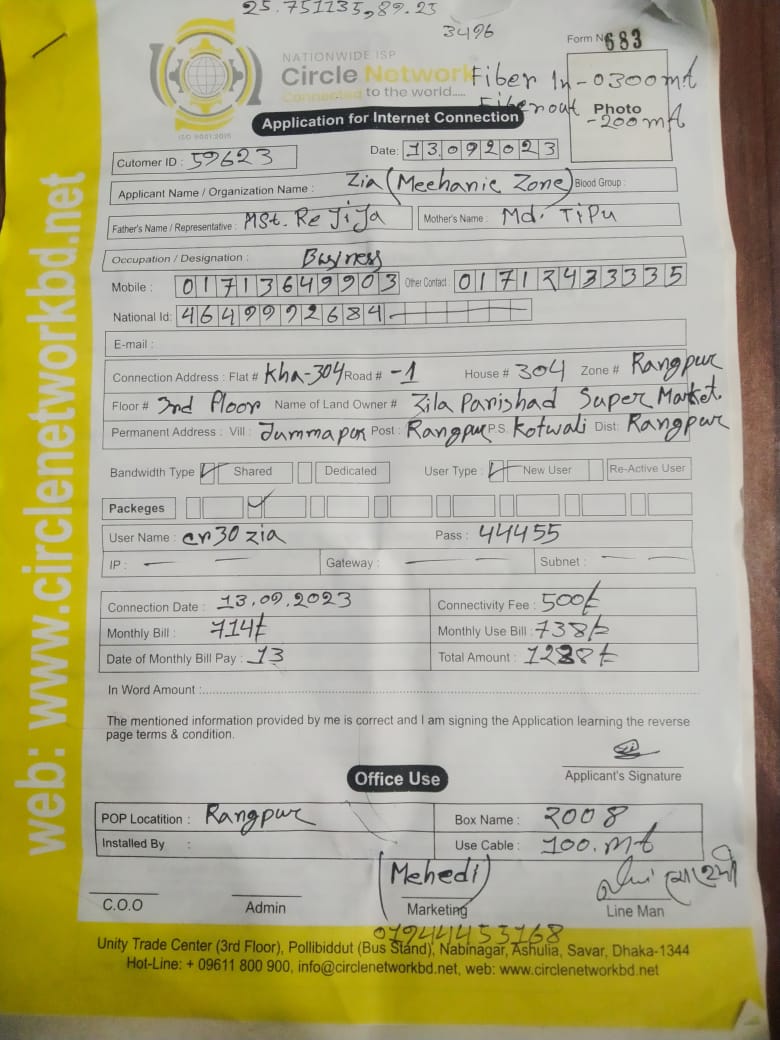 25.751135,89.25
3496
Form No 683
NATIONWIDE ISP
Circle Network
Connected to the world.....
ISO 9001:2015
Fiber In - 0300mt
Fiber out - 200mt
Photo
Application for Internet Connection
Cutomer ID : 59623
Date: 13092023
Applicant Name / Organization Name : Zia (Mechanic Zone) Blood Group :
Father's Name / Representative : MSt. ReJiJa Mother's Name : Md. TiPu
Occupation / Designation : Busyness
Mobile : 01713649903 Other Contact : 01712433335
National Id: 4649992684
E-mail :
Connection Address : Flat # Kha-304 Road # -1 House # 304 Zone # Rangpur
Floor # 3rd floor Name of Land Owner # Zila Parishad Super Market
Permanent Address : Vill : Jummapur Post : Rangpur P.S. Kotwali Dist: Rangpur
Bandwidth Type Shared Dedicated User Type : New User Re-Active User
Packeges
User Name : cn30 zia Pass : 44455
IP : Gateway : Subnet :
Connection Date : 13.09.2023 Connectivity Fee : 500/-
Monthly Bill : 714/- Monthly Use Bill : 738/-
Date of Monthly Bill Pay : 13 Total Amount : 1238/-
In Word Amount :
The mentioned information provided by me is correct and I am signing the Application learning the reverse
page terms & condition.
Applicant's Signature
Office Use
POP Locatition : Rangpur Box Name : 2008
Installed By : Use Cable : 100.mt
(Mehedi)
C.O.O Admin Marketing Line Man
01944453168
Unity Trade Center (3rd Floor), Pollibiddut (Bus Stand), Nabinagar, Ashulia, Savar, Dhaka-1344
Hot-Line: + 09611 800 900, info@circlenetworkbd.net, web: www.circlenetworkbd.net
web: www.circlenetworkbd.net